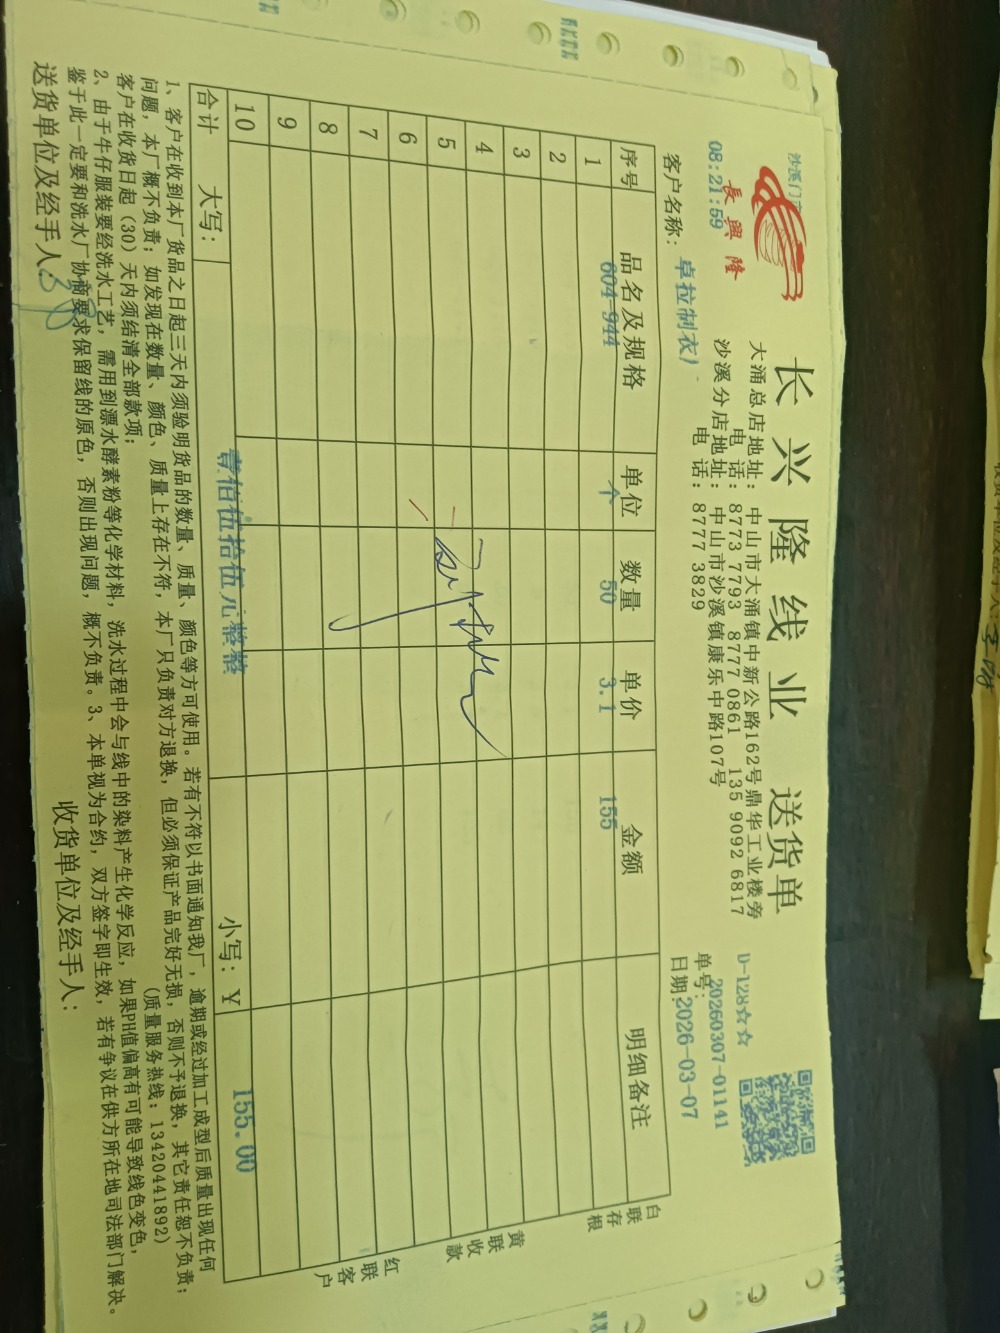 長興隆
08:21:59
长兴隆线业 送货单
大涌总店地址:中山市大涌镇中新公路162号鼎华工业楼旁
电 话:8773 7793 8777 0861 135 9092 6817
沙溪分店地址:中山市沙溪镇康乐中路107号
电 话:8777 3829
D-128☆☆
单号:20260307-01141
日期:2026-03-07
客户名称: 卓拉制衣厂
序号 品名及规格 单位 数量 单价 金额 明细备注
1 604-944 个 50 3.1 155
2
3
4
5
6
7
8
9
10
合计 大写: 壹佰伍拾伍元整整 小写:¥ 155.00
白联存根
黄联收款
红联客户
1、客户在收到本厂货品之日起三天内须验明货品的数量、质量、颜色等方可使用。若有不符以书面通知我厂,逾期或经过加工成型后质量出现任何
问题,本厂概不负责;如发现在数量、颜色、质量上存在不符,本厂只负责对方退换,但必须保证产品完好无损,否则不予退换,其它责任恕不负责;
客户在收货日起(30)天内须结清全部款项; (质量服务热线:13420441892)
2、由于牛仔服装要经洗水工艺,需用到漂水酵素粉等化学材料,洗水过程中会与线中的染料产生化学反应,如果PH值偏高有可能导致线色变色,
鉴于此一定要和洗水厂协商要求保留线的原色,否则出现问题,概不负责。3、本单视为合约,双方签字即生效,若有争议在供方所在地司法部门解决。
送货单位及经手人: 收货单位及经手人: